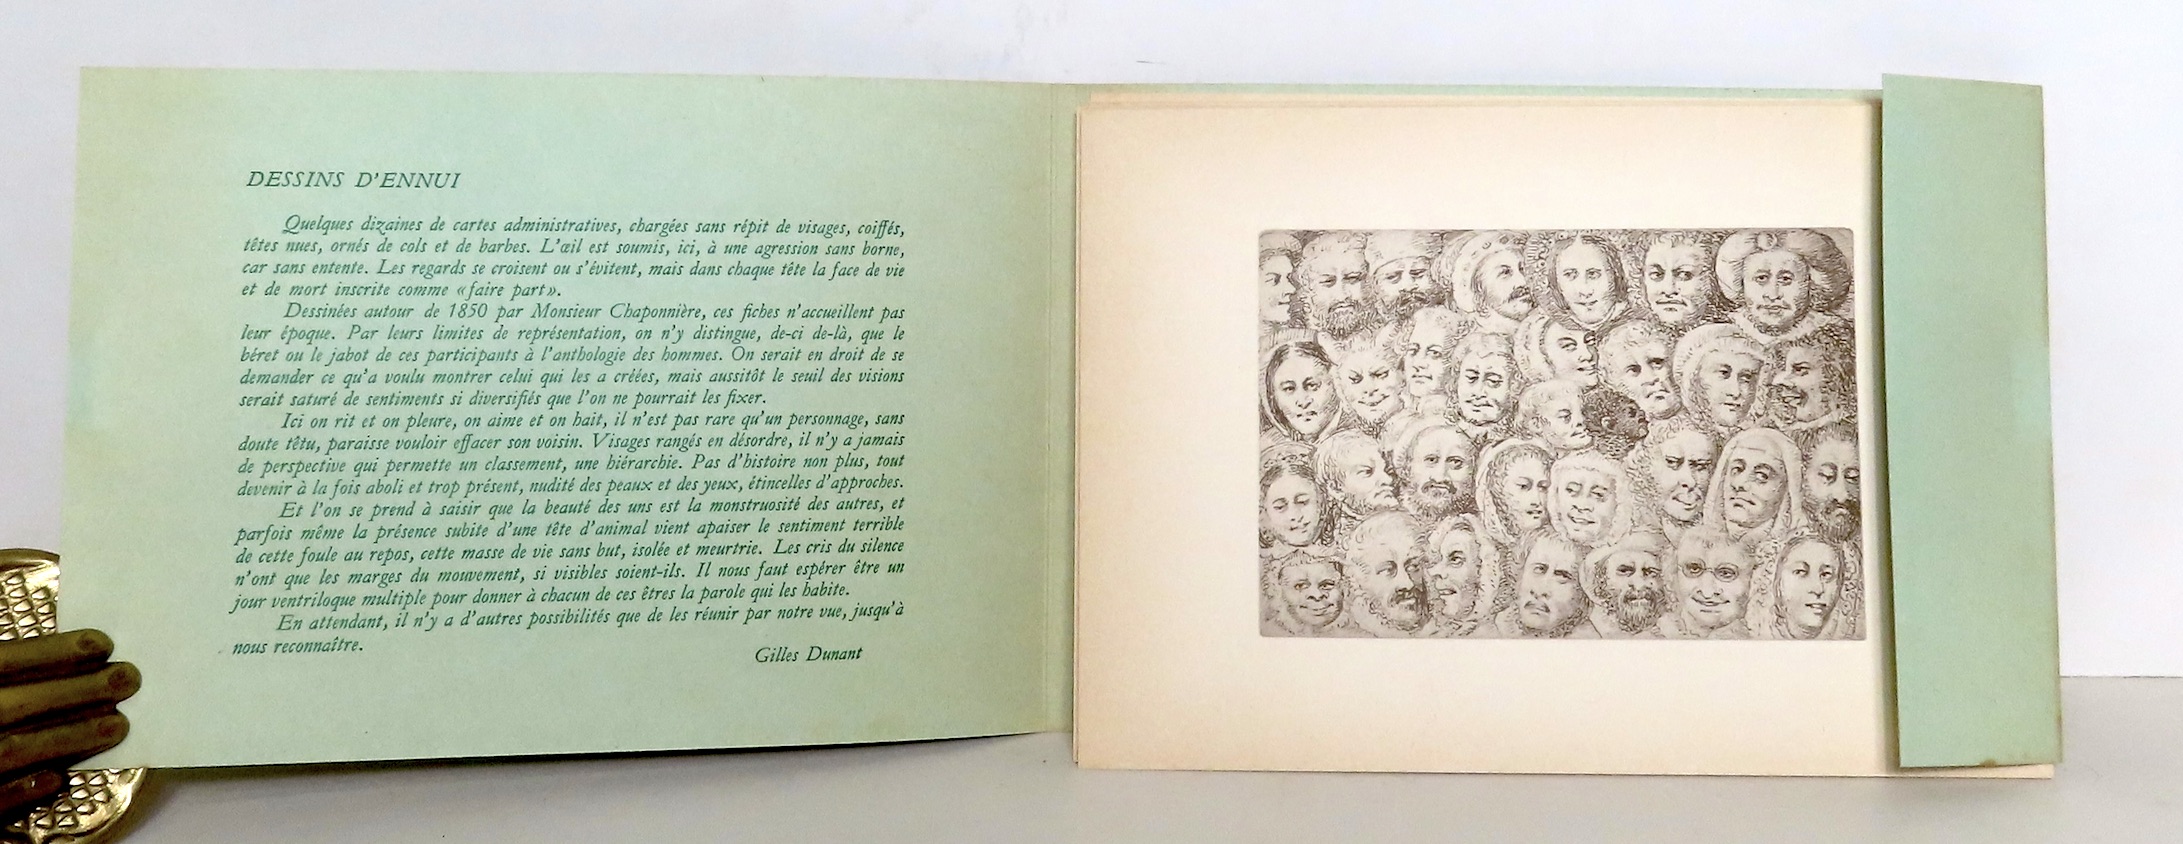 DESSINS D'ENNUI
Quelques dizaines de cartes administratives, chargées sans répit de visages, coiffés,
têtes nues, ornés de cols et de barbes. L'œil est soumis, ici, à une agression sans borne,
car sans entente. Les regards se croisent ou s'évitent, mais dans chaque tête la face de vie
et de mort inscrite comme «faire part».
Dessinées autour de 1850 par Monsieur Chaponnière, ces fiches n'accueillent pas
leur époque. Par leurs limites de représentation, on n'y distingue, de-ci de-là, que le
béret ou le jabot de ces participants à l'anthologie des hommes. On serait en droit de se
demander ce qu'a voulu montrer celui qui les a créées, mais aussitôt le seuil des visions
serait saturé de sentiments si diversifiés que l'on ne pourrait les fixer.
Ici on rit et on pleure, on aime et on hait, il n'est pas rare qu'un personnage, sans
doute têtu, paraisse vouloir effacer son voisin. Visages rangés en désordre, il n'y a jamais
de perspective qui permette un classement, une hiérarchie. Pas d'histoire non plus, tout
devenir à la fois aboli et trop présent, nudité des peaux et des yeux, étincelles d'approches.
Et l'on se prend à saisir que la beauté des uns est la monstruosité des autres, et
parfois même la présence subite d'une tête d'animal vient apaiser le sentiment terrible
de cette foule au repos, cette masse de vie sans but, isolée et meurtrie. Les cris du silence
n'ont que les marges du mouvement, si visibles soient-ils. Il nous faut espérer être un
jour ventriloque multiple pour donner à chacun de ces êtres la parole qui les habite.
En attendant, il n'y a d'autres possibilités que de les réunir par notre vue, jusqu'à
nous reconnaître.
Gilles Dunant